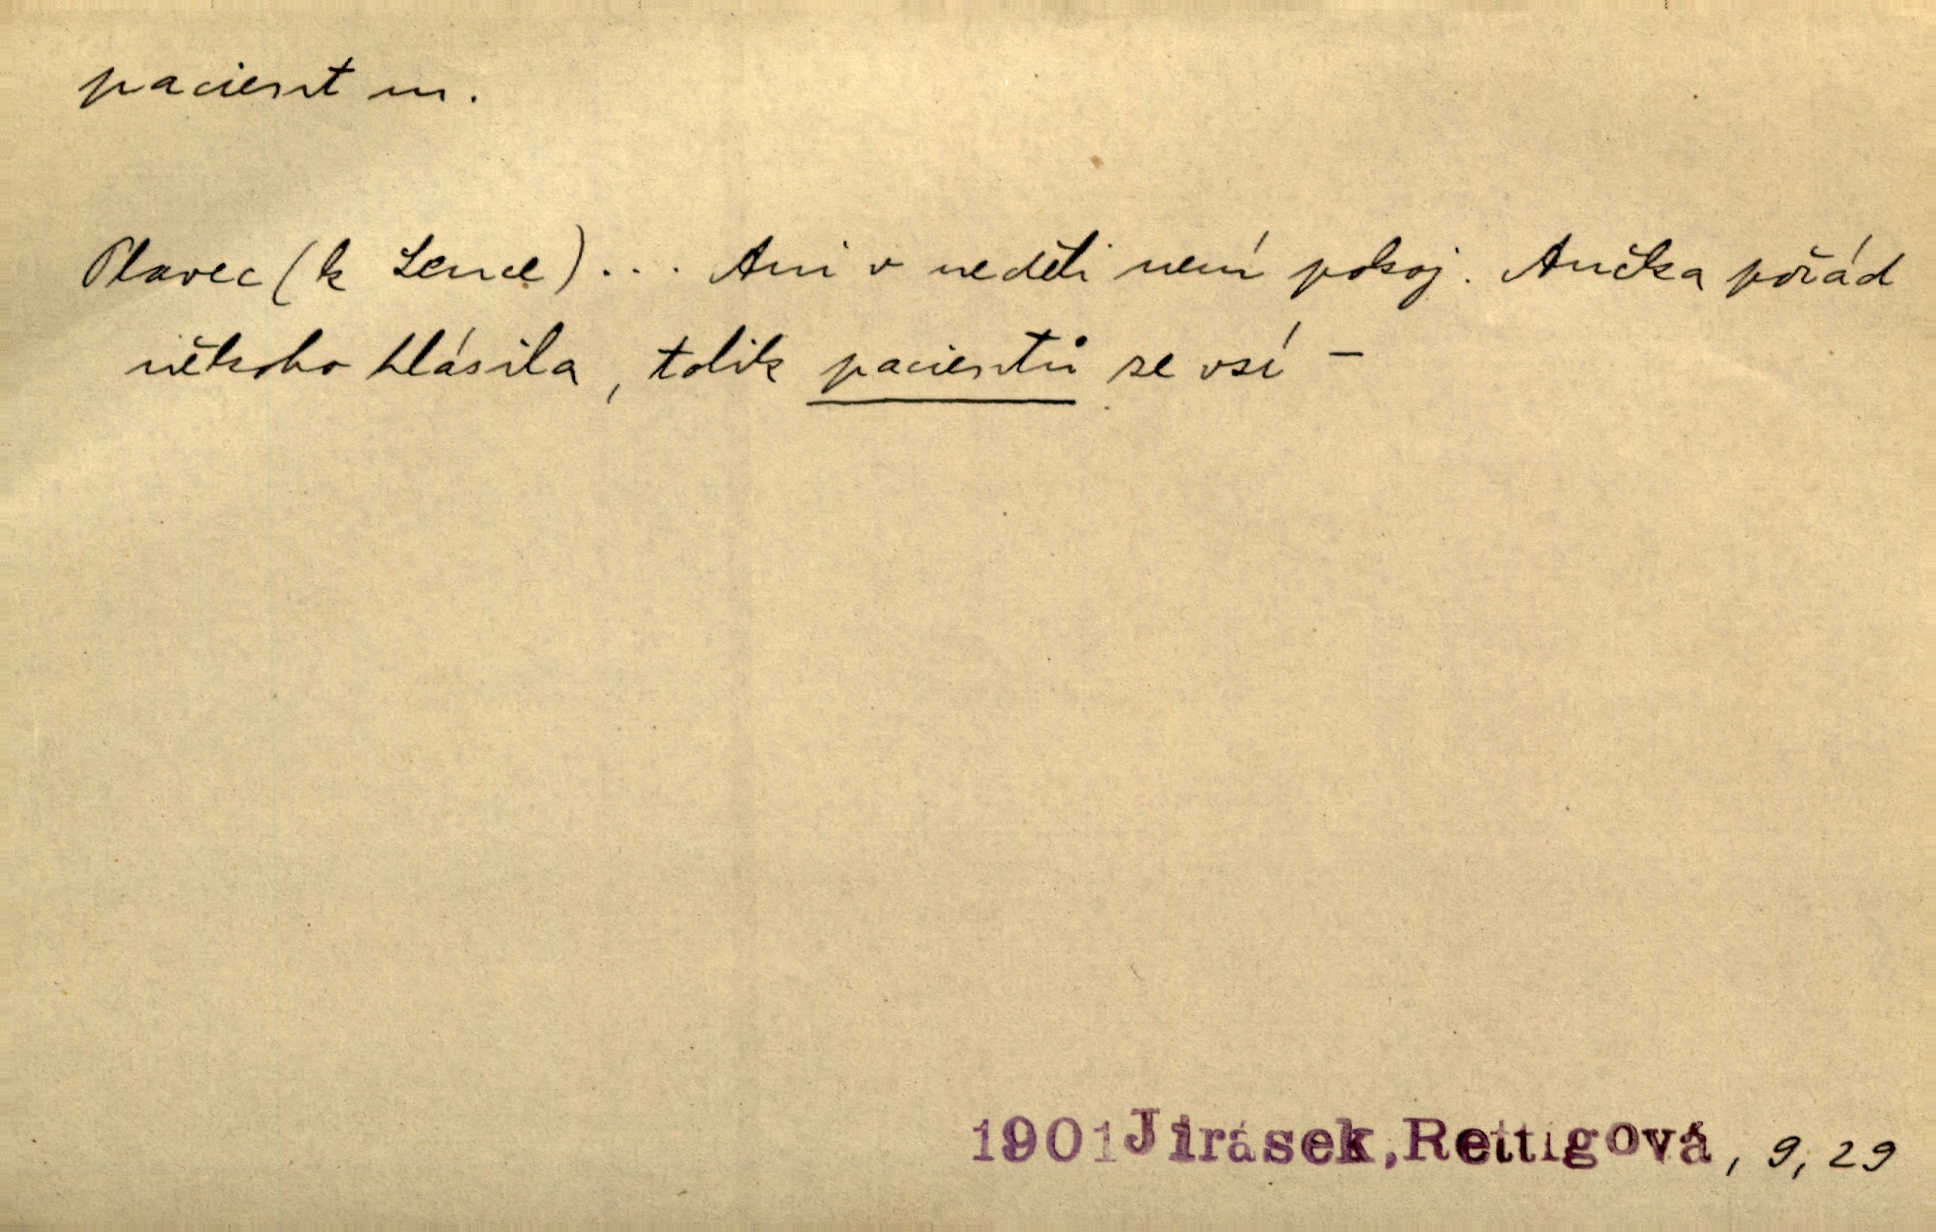 pacient m.
Plavec (k Lence)... Ani v neděli není pokoj. Ančka pořád
někoho hlásila, tolik pacientů se vsí –
1901 Jirásek, Rettigová, 9, 29